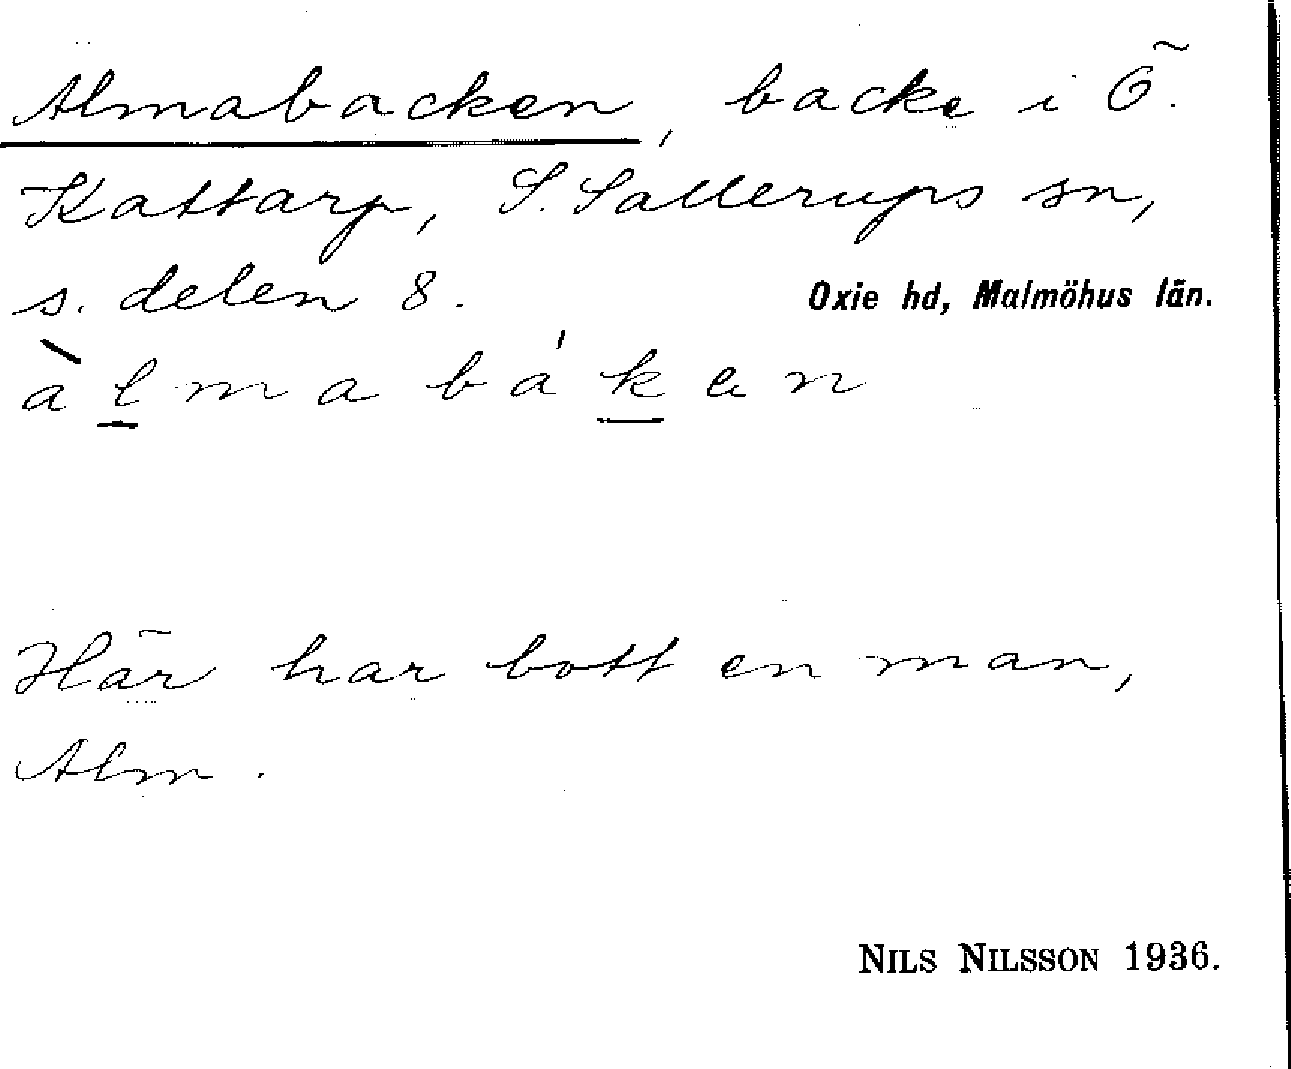 Almabacken, backe i Ö.
Kattarp, S. Sallerups sn,
s. delen 8.
Oxie hd, Malmöhus län.
àl̲mabák̲en
Här har bott en man,
Alm.
NILS NILSSON 1936.